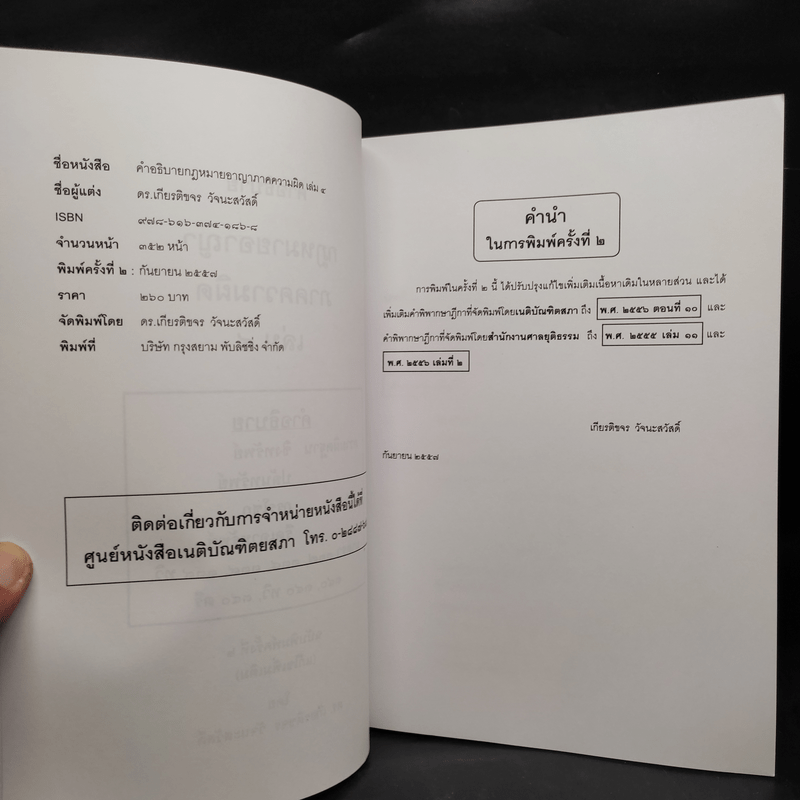 ชื่อหนังสือ คำอธิบายกฎหมายอาญาภาคความผิด เล่ม ๔
ชื่อผู้แต่ง ดร.เกียรติขจร วัจนะสวัสดิ์
ISBN ๙๗๘-๖๑๖-๓๗๔-๑๘๖-๘
จำนวนหน้า ๓๕๒ หน้า
พิมพ์ครั้งที่ ๒ : กันยายน ๒๕๕๗
ราคา ๒๖๐ บาท
จัดพิมพ์โดย ดร.เกียรติขจร วัจนะสวัสดิ์
พิมพ์ที่ บริษัท กรุงสยาม พับลิชชิ่ง จำกัด
ติดต่อเกี่ยวกับการจำหน่ายหนังสือนี้ได้ที่
ศูนย์หนังสือเนติบัณฑิตยสภา โทร.
คำนำ
ในการพิมพ์ครั้งที่ ๒
การพิมพ์ในครั้งที่ ๒ นี้ ได้ปรับปรุงแก้ไขเพิ่มเติมเนื้อหาเดิมในหลายส่วน และได้
เพิ่มเติมคำพิพากษาฎีกาที่จัดพิมพ์โดยเนติบัณฑิตสภา ถึง พ.ศ. ๒๕๕๖ ตอนที่ ๑๐ และ
คำพิพากษาฎีกาที่จัดพิมพ์โดยสำนักงานศาลยุติธรรม ถึง พ.ศ. ๒๕๕๕ เล่ม ๑๑ และ
พ.ศ. ๒๕๕๖ เล่มที่ ๒
เกียรติขจร วัจนะสวัสดิ์
กันยายน ๒๕๕๗